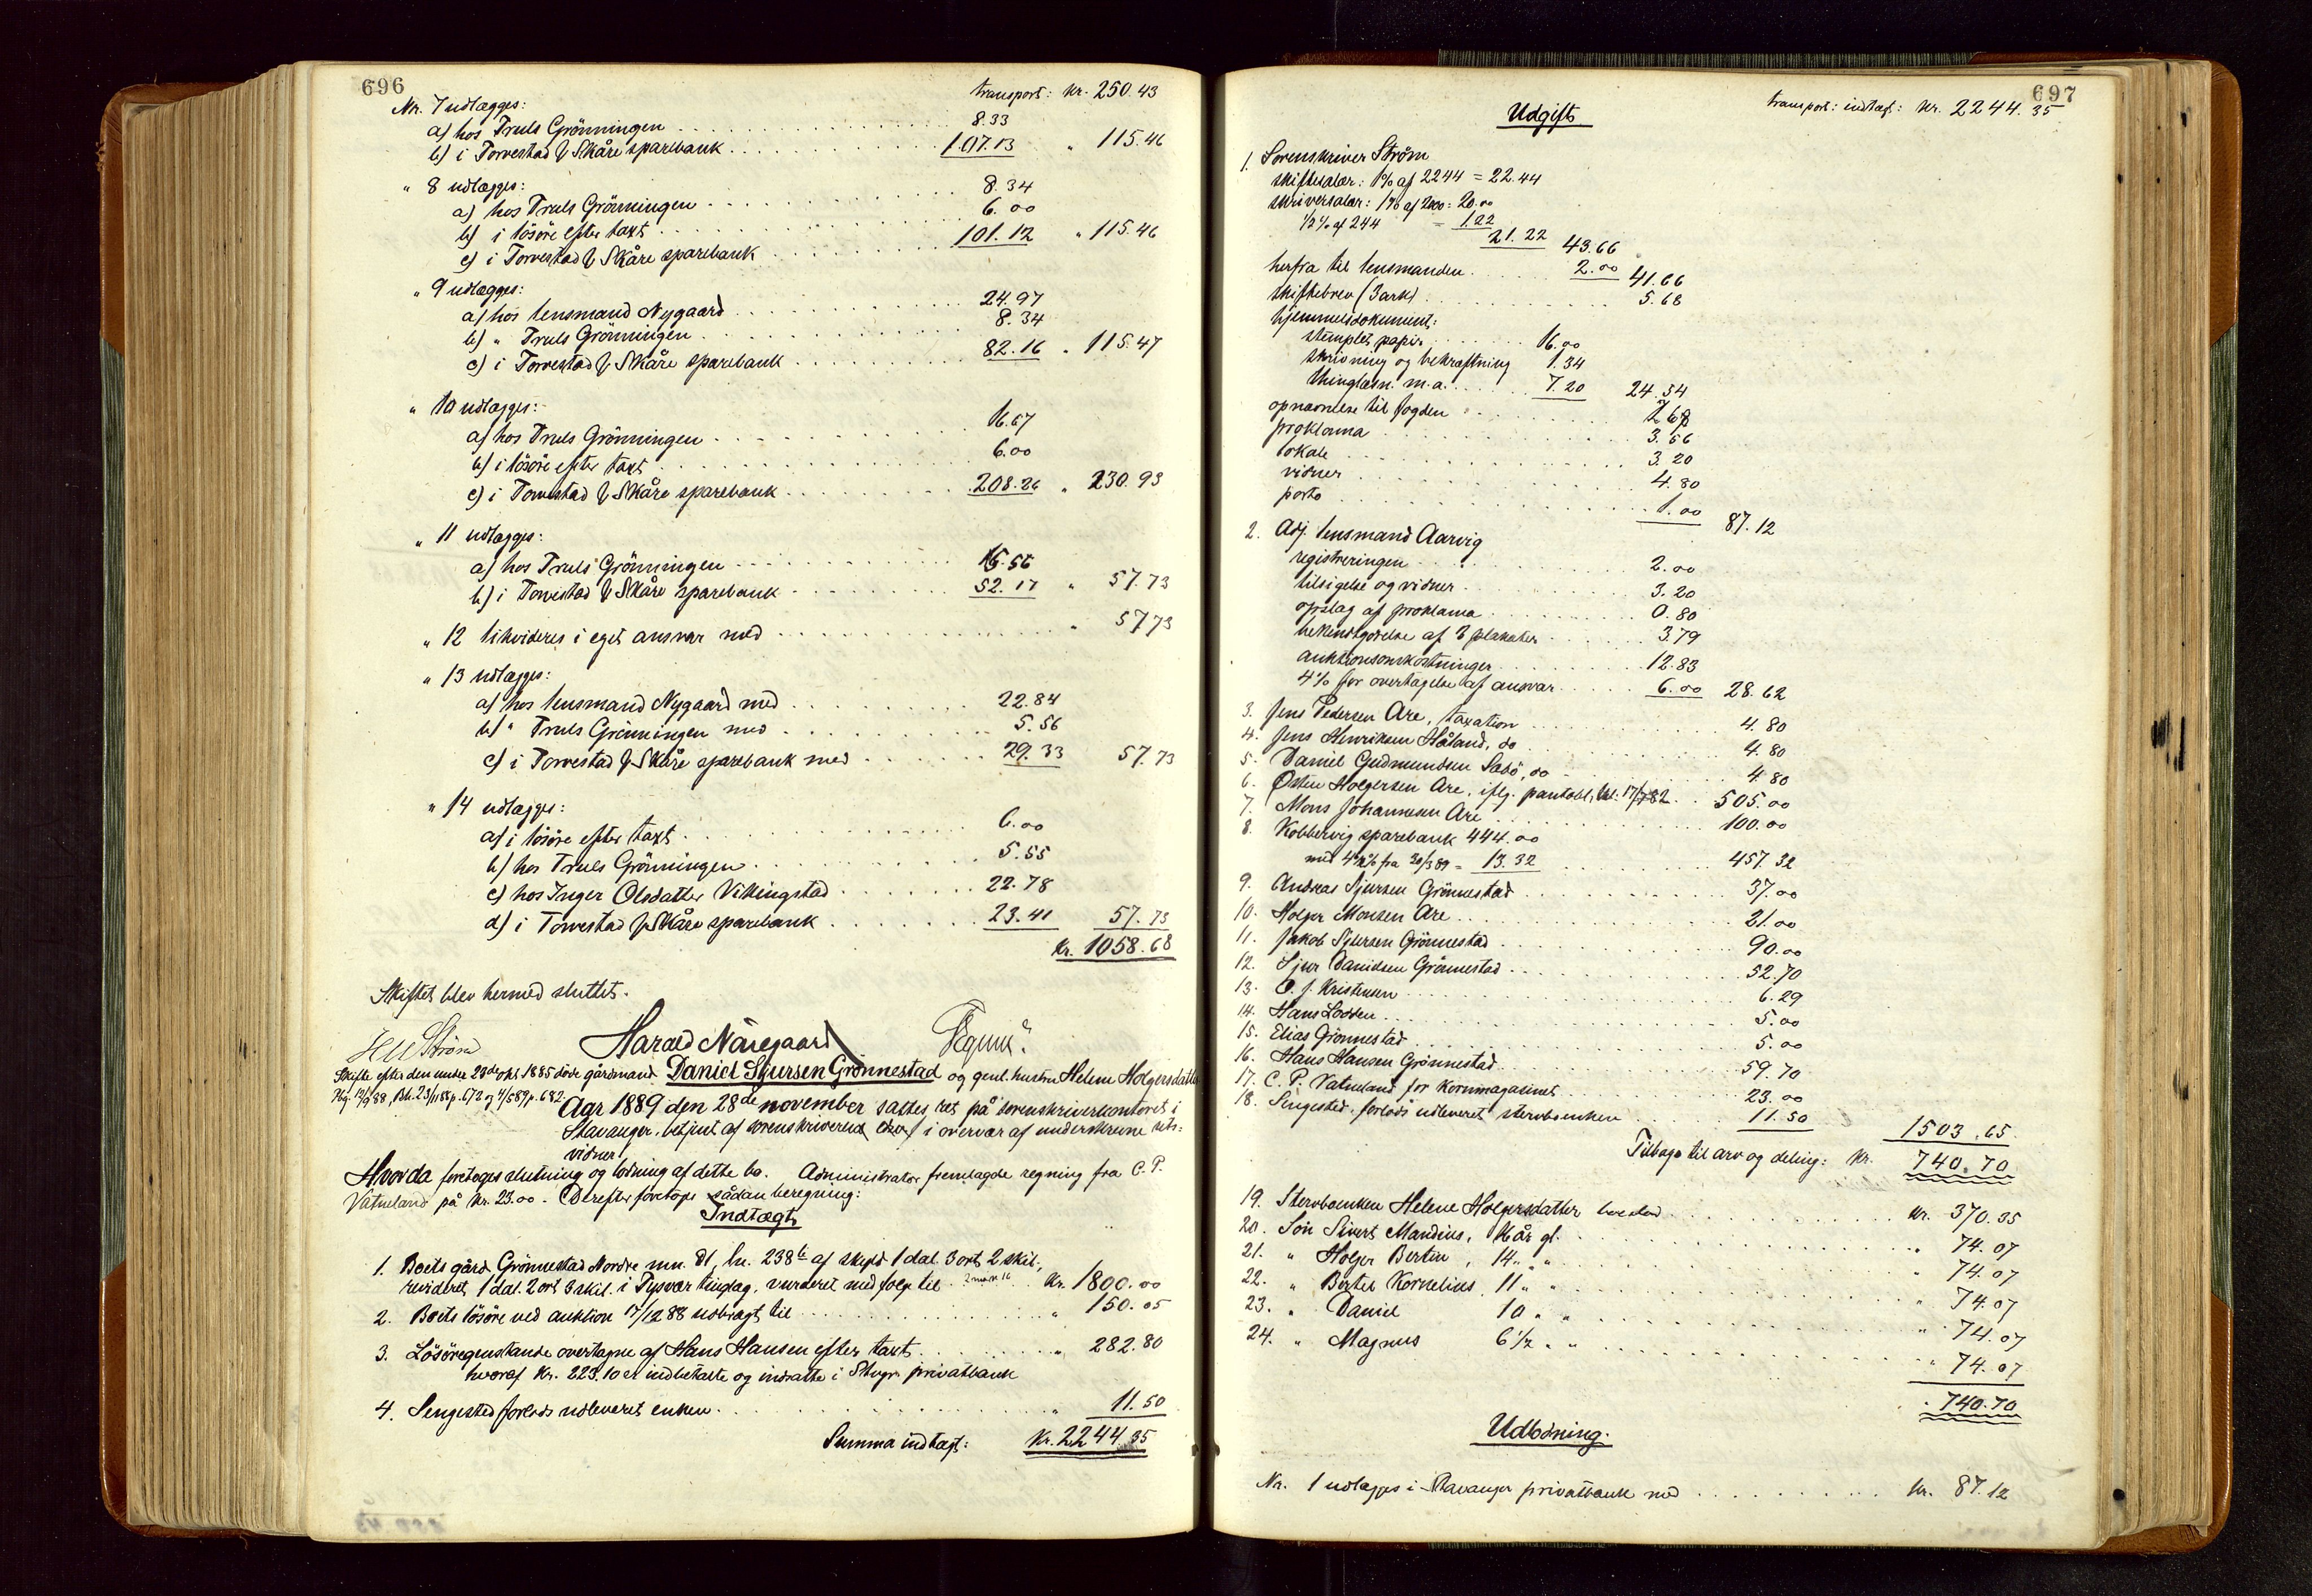 696
transport: Kr. 250.43
Nr. 7 udlægges:
a) hos Truls Grönningen 8.33
b) i Torvestad & Skåre sparebank 107.13 " 115.46
" 8 udlægges:
a) hos Truls Grönningen 8.34
b) i lösöre efter taxt 6.00
c) i Torvestad & Skåre sparebank 101.12 " 115.46
" 9 udlægges:
a) hos lensmand Nygaard 24.97
b) " Truls Grönningen 8.34
c) i Torvestad & Skåre sparebank 82.16 " 115.47
" 10 udlægges:
a) hos Truls Grönningen 16.67
b) i lösöre efter taxt 6.00
c) i Torvestad & Skåre sparebank 208.26 " 230.93
" 11 udlægges:
a) hos Truls Grönningen 5.56
b) i Torvestad & Skåre sparebank 52.17 " 57.73
" 12 likvideres i eget ansvar med " 57.73
" 13 udlægges:
a) hos lensmand Nygaard med 22.84
b) " Truls Grönningen med 5.56
c) i Torvestad & Skåre sparebank med 29.33 57.73
" 14 udlægges:
a) i lösöre efter taxt 6.00
b) hos Truls Grönningen 5.55
c) hos Inger Olsdatter Vikingstad 22.78
d) i Torvestad & Skåre sparebank 23.41 57.73
Kr. 1058.68
Skiftet blev hermed sluttet.
Ström Harald Norgaard
Skifte efter den under 23de okt. 1885 döde gårdmand Daniel Sjursen Grönnestad og genl. hustru Helene Holgersdatter
Reg. 12/9 88, Beh. 23/11 88 p. 672 og 4/5 89 p. 682.
Aar 1889 den 28de november sattes ret på sorenskriverkontoret i
Stavanger, betjent af sorenskriveren i overvær af underskrevne rets-
vidner
Hvorda foretoges slutning og lodning af dette bo. Administrator fremlagde regning fra C. P.
Vatneland på Kr. 23.00. Derefter foretoges sådan beregning:
Indtægt
1. Boets gård Grönnestad Nordre mn. 81, ln. 238b af skyld 1 dal. 3 ort 2 skil.,
revideret 1 dal. 2 ort 3 skil. i Tysvær tinglag, vurderet med følge til Kr. 1800.00
2. Boets lösöre ved auktion 17/12 88 udbragt til " 150.05
3. Lösöregenstande overtagne af Hans Hansen efter taxt " 282.80
hvoraf Kr. 223.10 er indbetalte og indsatte i Stvgr. privatbank
4. Sengested forlods udleveret enken " 11.50
Summa indtægt: Kr. 2244.35
697
transport: indtægt: Kr. 2244.35
Udgift
1. Sorenskriver Ström
skiftesalær: 1% af 2244 = 22.44
skriversalær: 1% af 2000 = 20.00
1/2% af 244 = 1.22
21.22 43.66
herfra til lensmanden 2.00 41.66
skiftebrev (3 ark) 5.68
hjemmelsdokument:
stemplet papir 16.00
skrivning og bekræftning 1.34
thinglæsn. m.a. 7.20 24.54
opnævnelse til fogden
proklama 3.56
lokale 3.20
vidner 4.80
porto 1.00 87.12
2. Adj. lensmand Aarvig
registreringen 2.00
tilsigelse og vidner 3.20
opslag af proklama 0.80
bekjendtgjörelse af 3 plakater 3.79
auktionsomkostninger 12.83
4% for overtagelse af ansvar 6.00 28.62
3. Jens Pedersen Are, taxation 4.80
4. Jens Henriksen Håland, do 4.80
5. Daniel Gudmundsen Sæbö, do 4.80
6. Østen Holgersen Are, iflg. pantobl., 505.00
7. Mons Johannesen Are 100.00
8. Kobbervig sparebank 444.00
med 4 1/2% fra 30/3 89 = 13.32 457.32
9. Andreas Sjursen Grönnestad 37.00
10. Holger Monsen Are 21.00
11. Jakob Sjursen Grönnestad 90.00
12. Sjur Danielsen Grönnestad 52.70
13. O. J. Kristensen 6.29
14. Hans Lodden 5.00
15. Elias Grönnestad 5.00
16. Hans Hansen Grönnestad 59.70
17. C. P. Vatneland for Kornmagasinet 23.00
18. Sengested forlods udleveret stervboenken 11.50 1503.65
Tilbage til arv og deling: Kr. 740.70
19. Stervboenken Helene Holgersdatter boeslod Kr. 370.35
20. Sön Sivert Mandius, 16 år gl. " 74.07
21. " Holger Bertin, 14 " " " 74.07
22. " Bertel Kornelius, 11 " " " 74.07
23. " Daniel 10 " " " 74.07
24. " Magnus 6 1/2 " " " 74.07
740.70
Udlodning.
Nr. 1 udlægges i Stavanger privatbank med Kr. 87.12